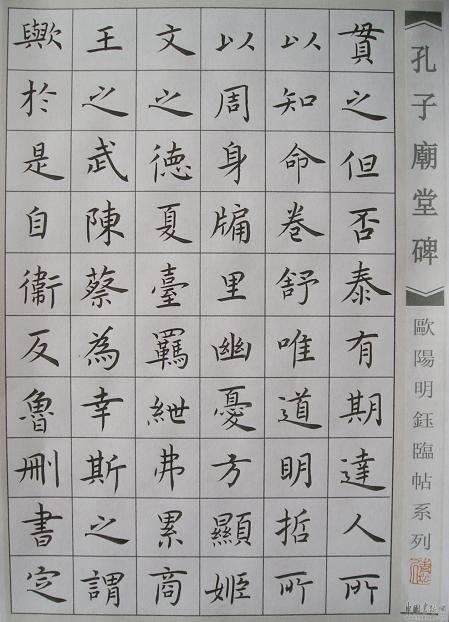 《孔子廟堂碑》
歐陽明鈺臨帖系列
貫之但否泰有期達人所
以知命卷舒唯道明哲所
以周身牖里幽憂方顯姬
文之德夏臺羈紲弗累商
王之武陳蔡為幸斯之謂
歟於是自衛反魯刪書定